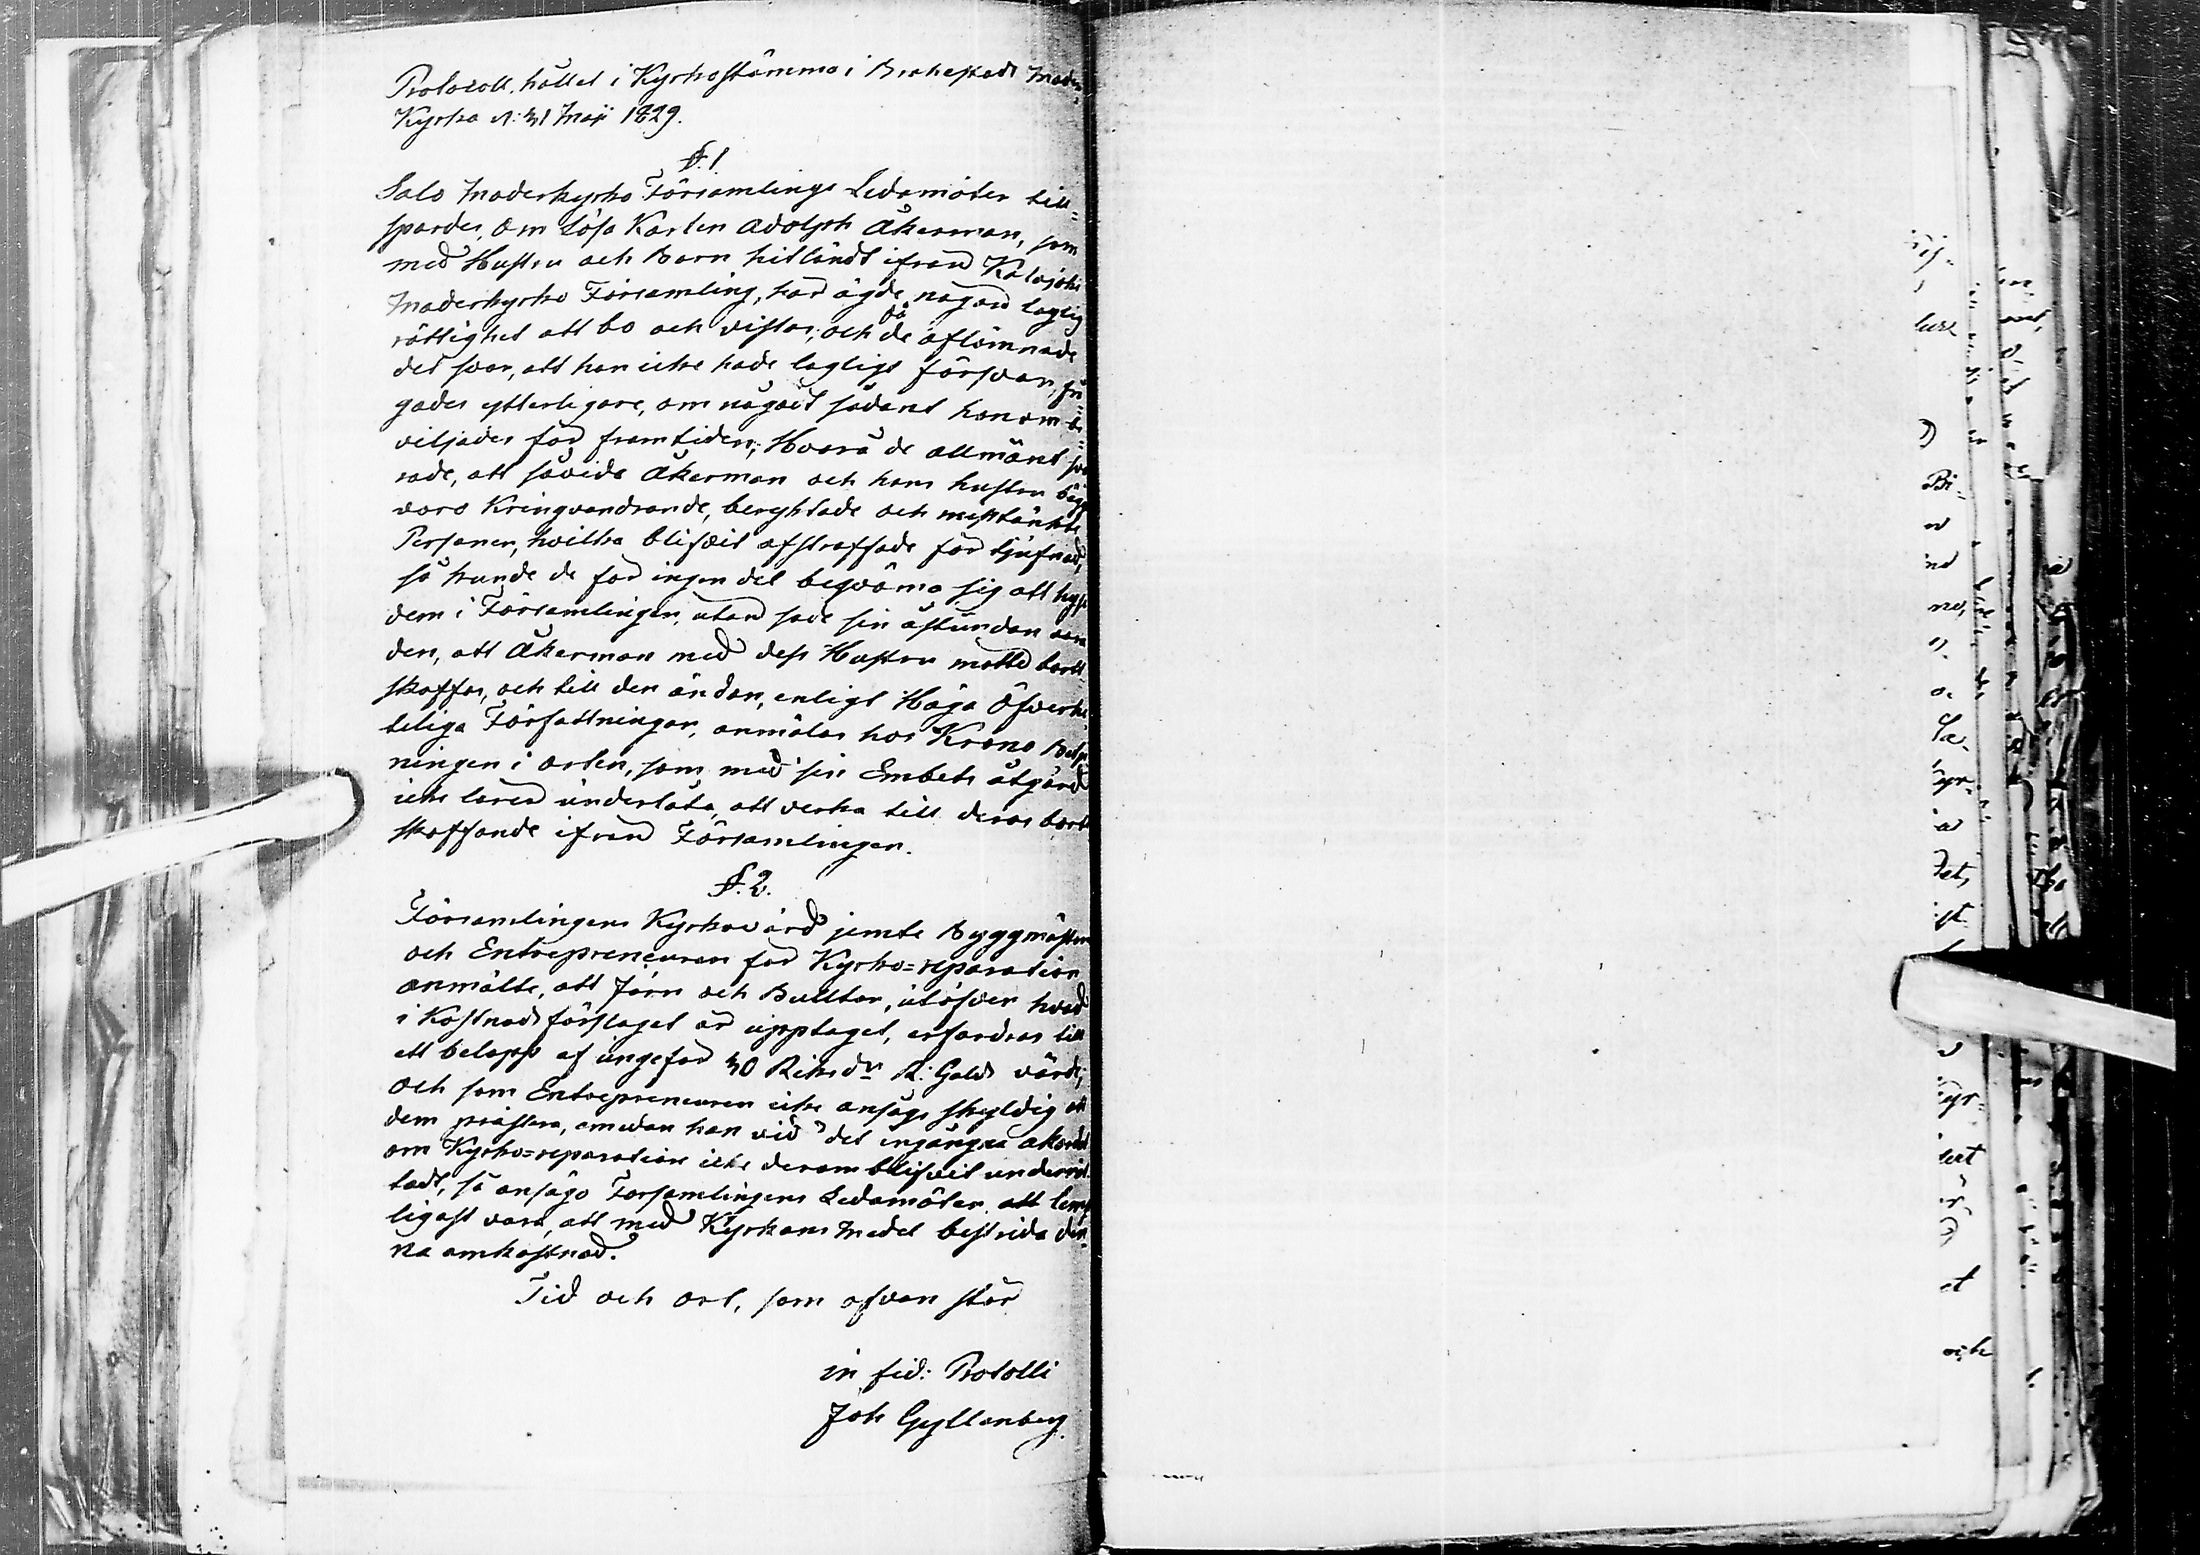 Protocoll, hållet i Kyrkostämma i Brahestads Moder
Kyrka d: 31 Maji 1829.
§. 1.
Salo Moderkyrko Församlings Ledamöter till-
spordes, om Lösa Karlen Adolph Åkerman, som
med Hustru och Barn hitländt ifrån Kalajoki
Moderkyrko Församling, har ägde någon laglig
rättighet att bo och vistas; och då de aflämnade
det svar, att han icke hade lagligt försvar, frå-
gades ytterligare, om något sådant honom be-
viljades för framtiden; Hvarå de allmänt sva
rade, att såvida Åkerman och hans hustru bägge
voro Kringvandrande, beryktade och misstänkte
Personer, hvilka blifvit afstraffade för tjufnad,
så kunde de för ingen del beqväma sig att hysa
dem i Församlingen, utan sade sin åstundan vara
den, att Åkerman med dess Hustru måtte bort
skaffas, och till den ändan, enligt Höga Öfverhe
teliga Författningar, anmälas hos Krono Betje
ningen i orten, som med sin Embets åtgärd
icke lärer underlåta, att verka till deras bort
skaffande ifrån Församlingen.
§. 2.
Församlingens Kyrkovärd jemte Byggmästaren
och Entrepreneuren för Kyrko=reparation
anmälte, att Järn och Bultar, utöfver hvad
i Kostnadsförslaget är upptaget, erfordras till
ett belopp af ungefär 30 Riksdr R: Gälds värde,
och som Entrepreneuren icke ansågs skyldig att
dem præstera, emedan han vid det ingångna akordet
om Kyrko=reparation icke derom blifvit underrät
tad, så ansågo Församlingens Ledamöter, att lemp
ligast vara, att med Kyrkans Medel bestrida den-
na omkostnad.
Tid och ort, som ofvan står
in fid: Protolli
Joh Gyllenberg.